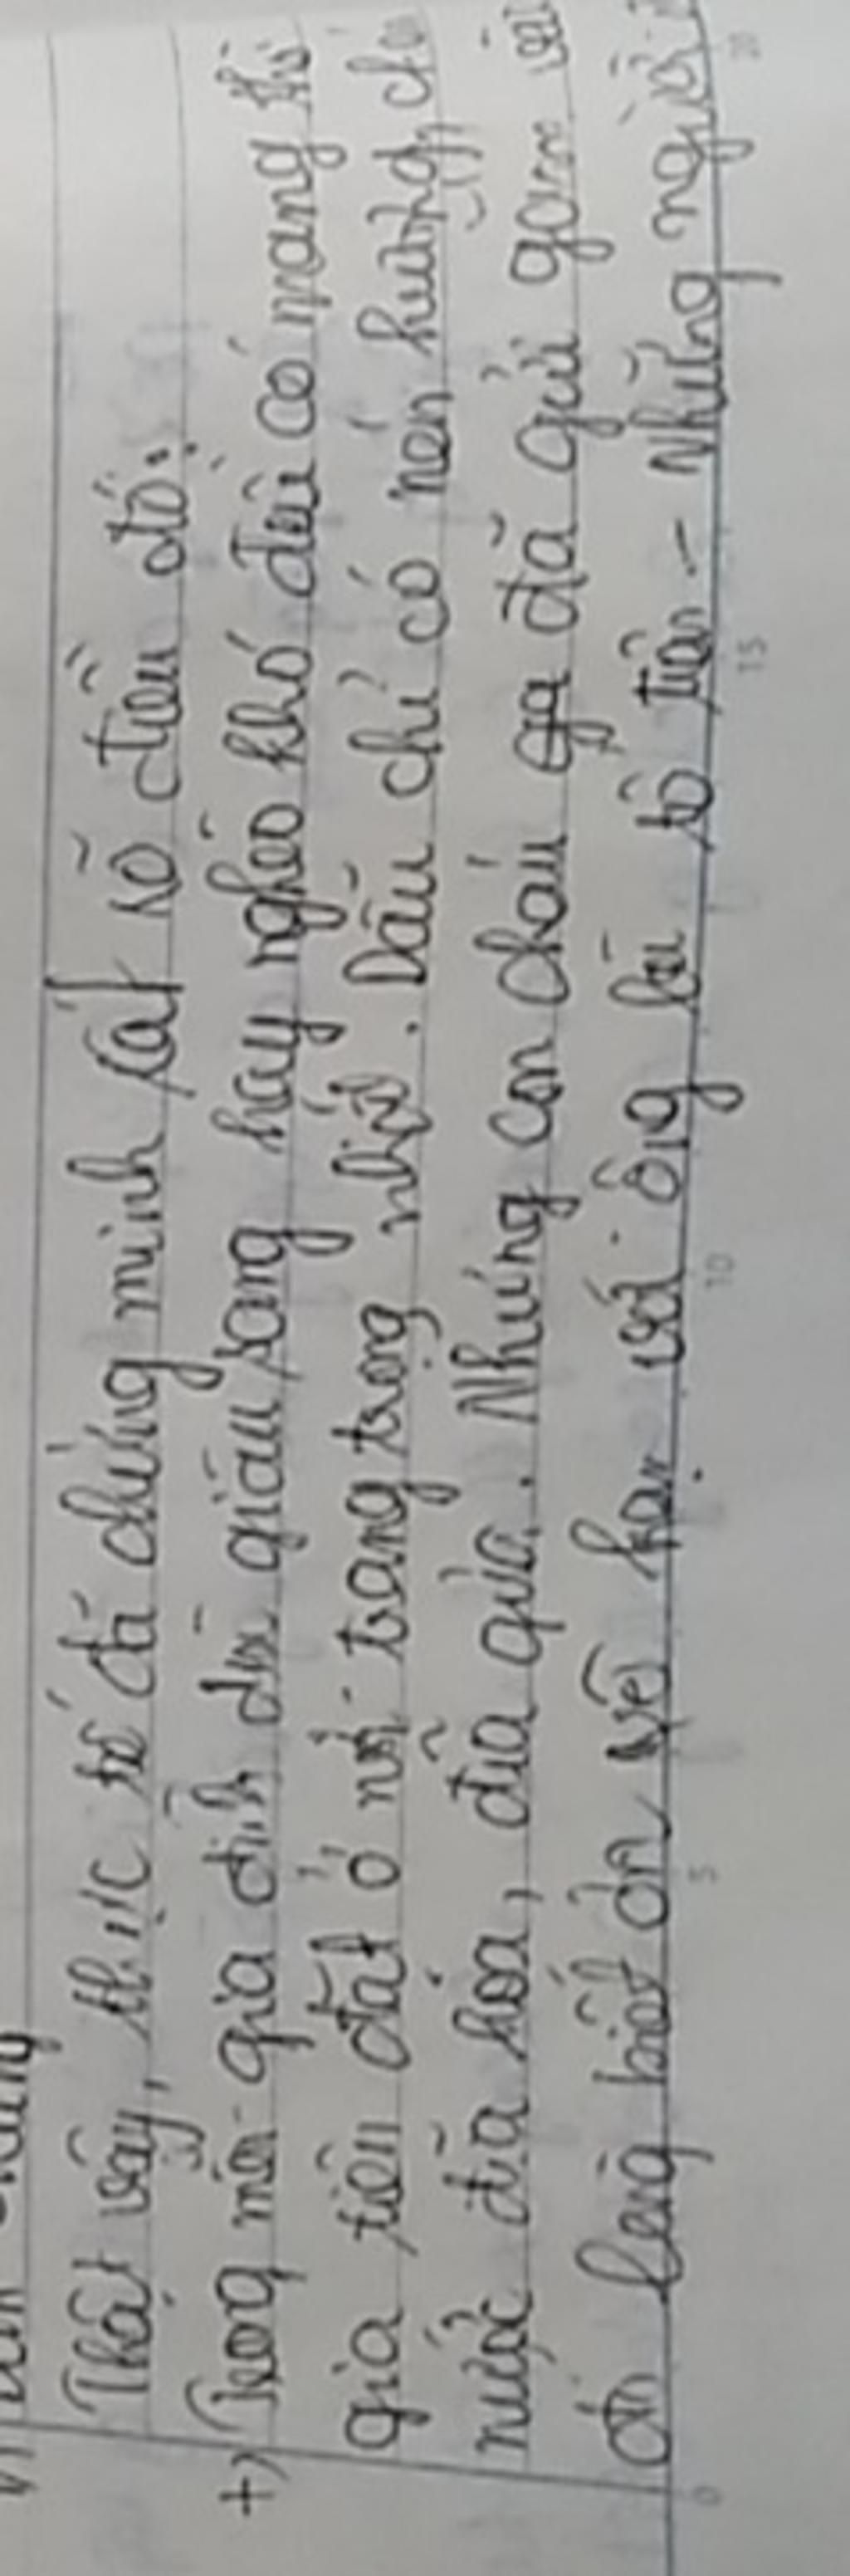 Thật vậy, thực tế đã chứng minh rất rõ điều đó:
+) Trong mỗi gia đình dù giàu sang hay nghèo khó đều có mang thờ
gia tiên đặt ở nơi trang trọng nhất. Dẫu chỉ có nén hương, chén
nước đĩa hoa, đĩa quả. Nhưng con cháu đã gửi gắm vài
đó lòng biết ơn vô hạn với ông bà tổ tiên - Những người